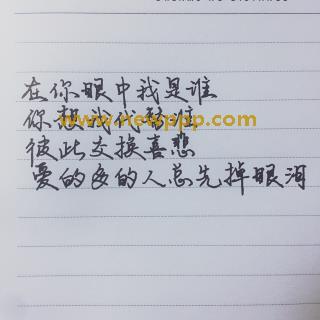 在你眼中我是谁
你想我代替谁
www.newppp.com
彼此交换喜悲
爱的多的人总先掉眼泪